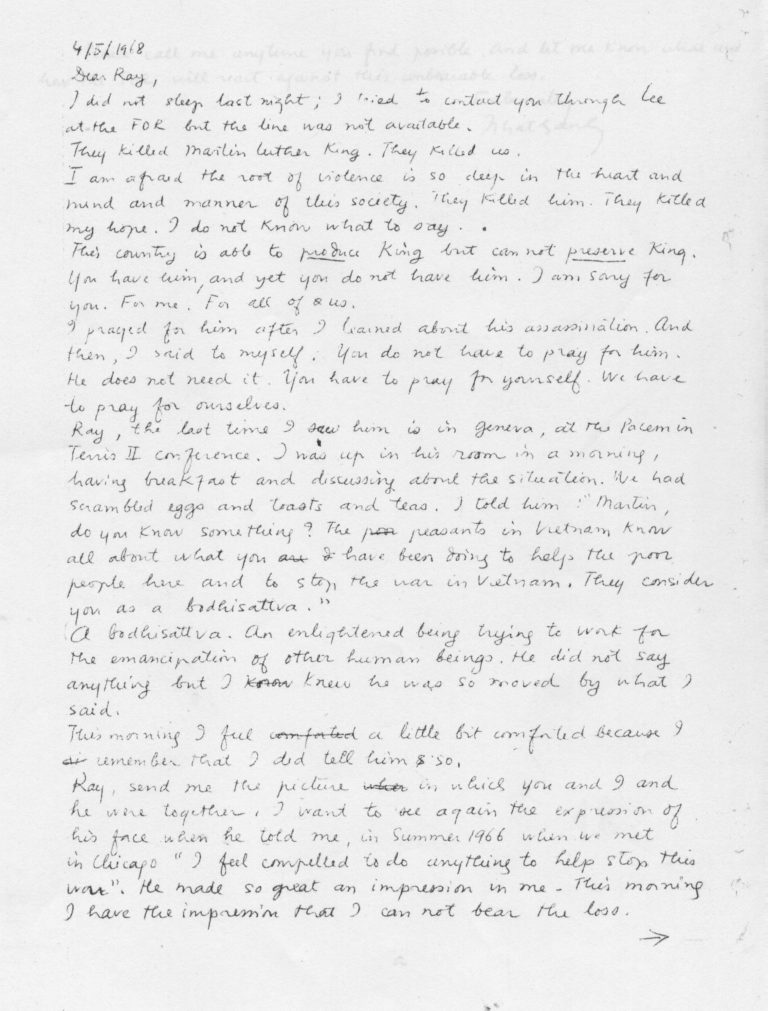 4/5/1968
Dear Ray,
I did not sleep last night; I tried to contact you through Lee
at the FOR but the line was not available.
They killed Martin Luther King. They killed us.
I am afraid the root of violence is so deep in the heart and
mind and manner of this society. They killed him. They killed
my hope. I do not know what to say . .
This country is able to produce King but can not preserve King.
You have him, and yet you do not have him. I am sorry for
you. For me. For all of us.
I prayed for him after I learned about his assassination. And
then, I said to myself: You do not have to pray for him.
He does not need it. You have to pray for yourself. We have
to pray for ourselves.
Ray, the last time I saw him is in Geneva, at the Pacem in
Terris II conference. I was up in his room in a morning,
having breakfast and discussing about the situation. We had
scrambled eggs and toasts and teas. I told him : "Martin,
do you know something? The poor peasants in Vietnam know
all about what you are have been doing to help the poor
people here and to stop the war in Vietnam. They consider
you as a bodhisattva."
A bodhisattva. An enlightened being trying to work for
the emancipation of other human beings. He did not say
anything but I know knew he was so moved by what I
said.
This morning I feel comforted a little bit comforted because I
remember that I did tell him so.
Ray, send me the picture when in which you and I and
he were together. I want to see again the expression of
his face when he told me, in Summer 1966 when we met
in Chicago "I feel compelled to do anything to help stop this
war". He made so great an impression in me - This morning
I have the impression that I can not bear the loss.
→